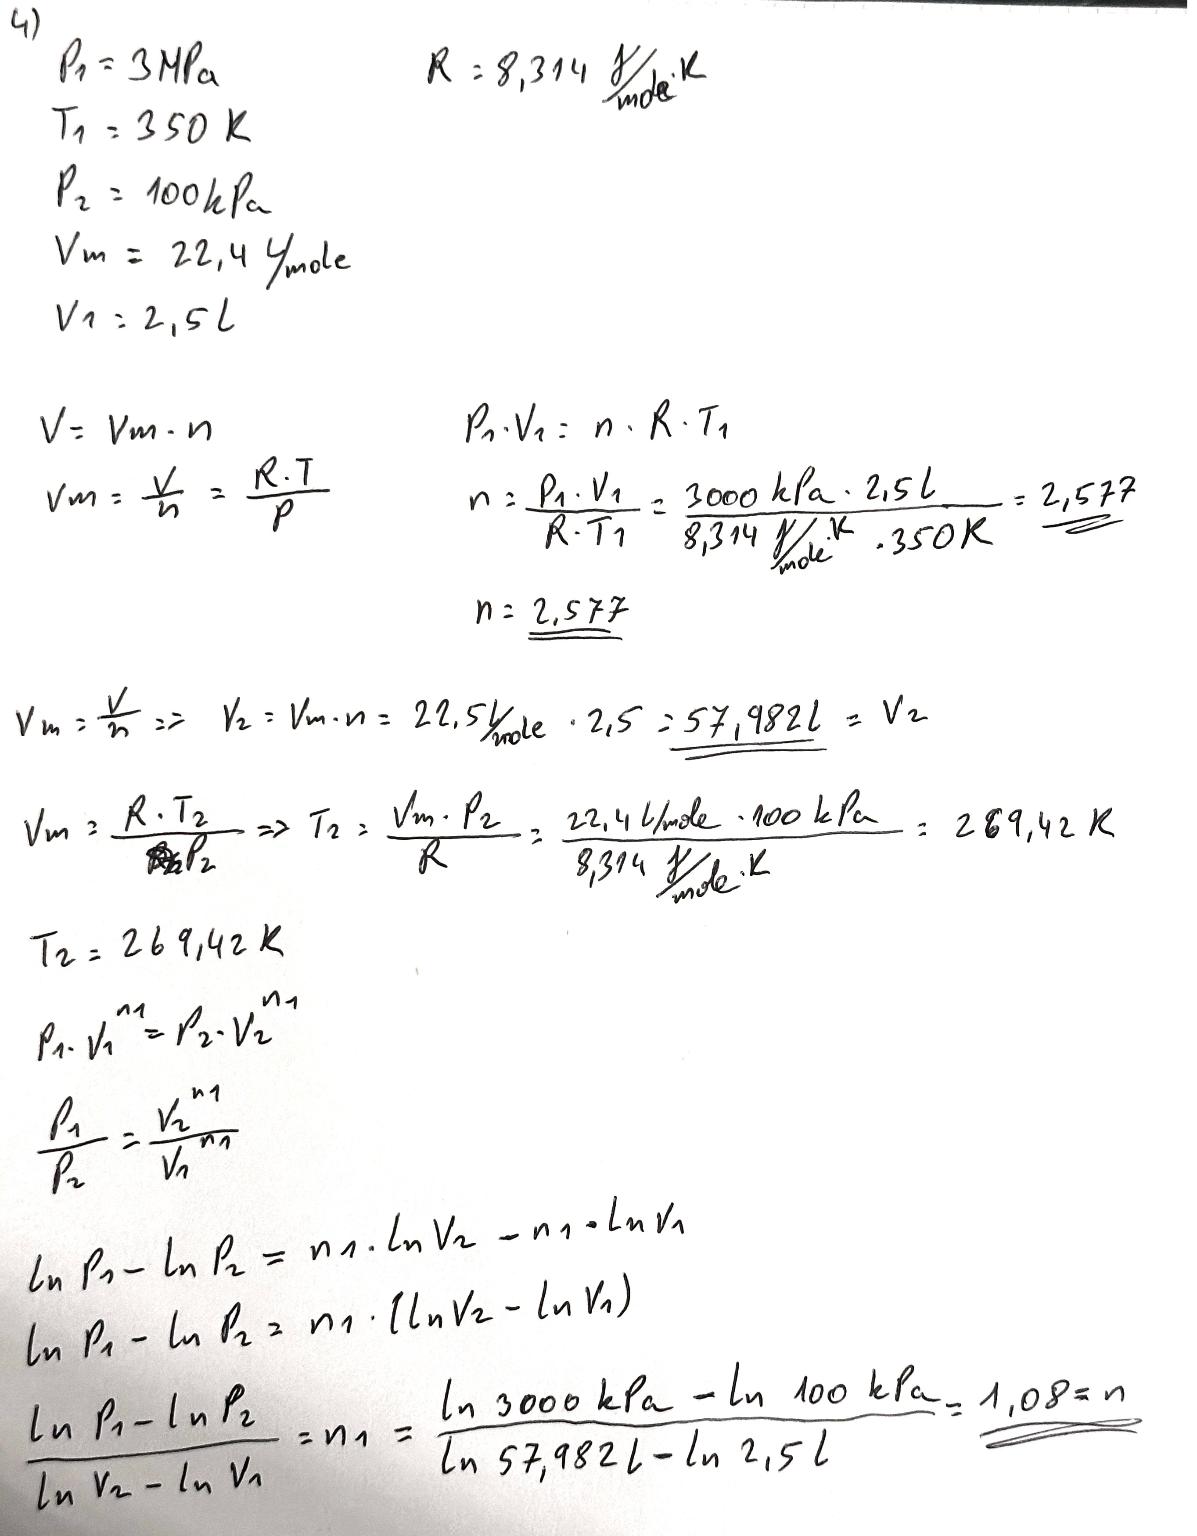 4)
P1 = 3 MPa R = 8,314 J/mole·K
T1 = 350 K
P2 = 100 kPa
Vm = 22,4 l/mole
V1 = 2,5 l
V = Vm · n P1·V1 = n · R · T1
Vm = V/n = R·T/P n = P1·V1/R·T1 = 3000 kPa · 2,5 l/8,314 J/mole·K · 350 K = 2,577
n = 2,577
Vm = V/n => V2 = Vm·n = 22,5 l/mole · 2,5 = 57,982 l = V2
Vm = R·T2/P2 => T2 = Vm·P2/R = 22,4 l/mole · 100 kPa/8,314 J/mole·K = 269,42 K
T2 = 269,42 K
P1·V1^n1 = P2·V2^n1
P1/P2 = V2^n1/V1^n1
ln P1 - ln P2 = n1·ln V2 - n1·ln V1
ln P1 - ln P2 = n1·(ln V2 - ln V1)
ln P1 - ln P2/ln V2 - ln V1 = n1 = ln 3000 kPa - ln 100 kPa/ln 57,982 l - ln 2,5 l = 1,08 = n